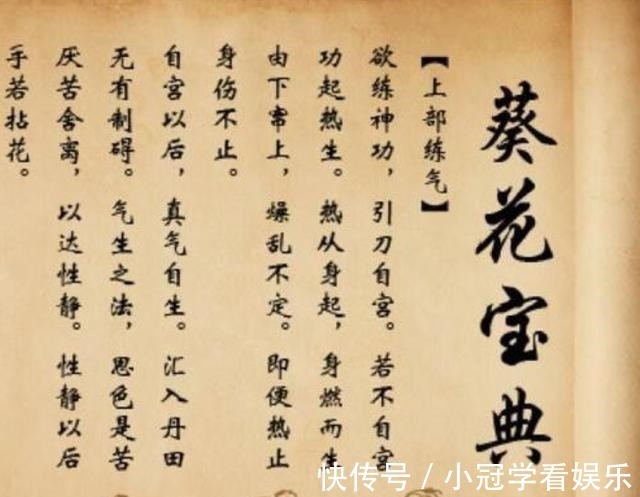 葵花宝典
【上部练气】
欲练神功，引刀自宫。若不自宫
功起热生。热从身起，身燃而生
由下窜上，燥乱不定。即便热止
身伤不止。
自宫以后，真气自生。汇入丹田
无有制碍。气生之法，思色是苦
厌苦舍离，以达性静。性静以后
手若拈花。
快传号 / 小冠学看娱乐